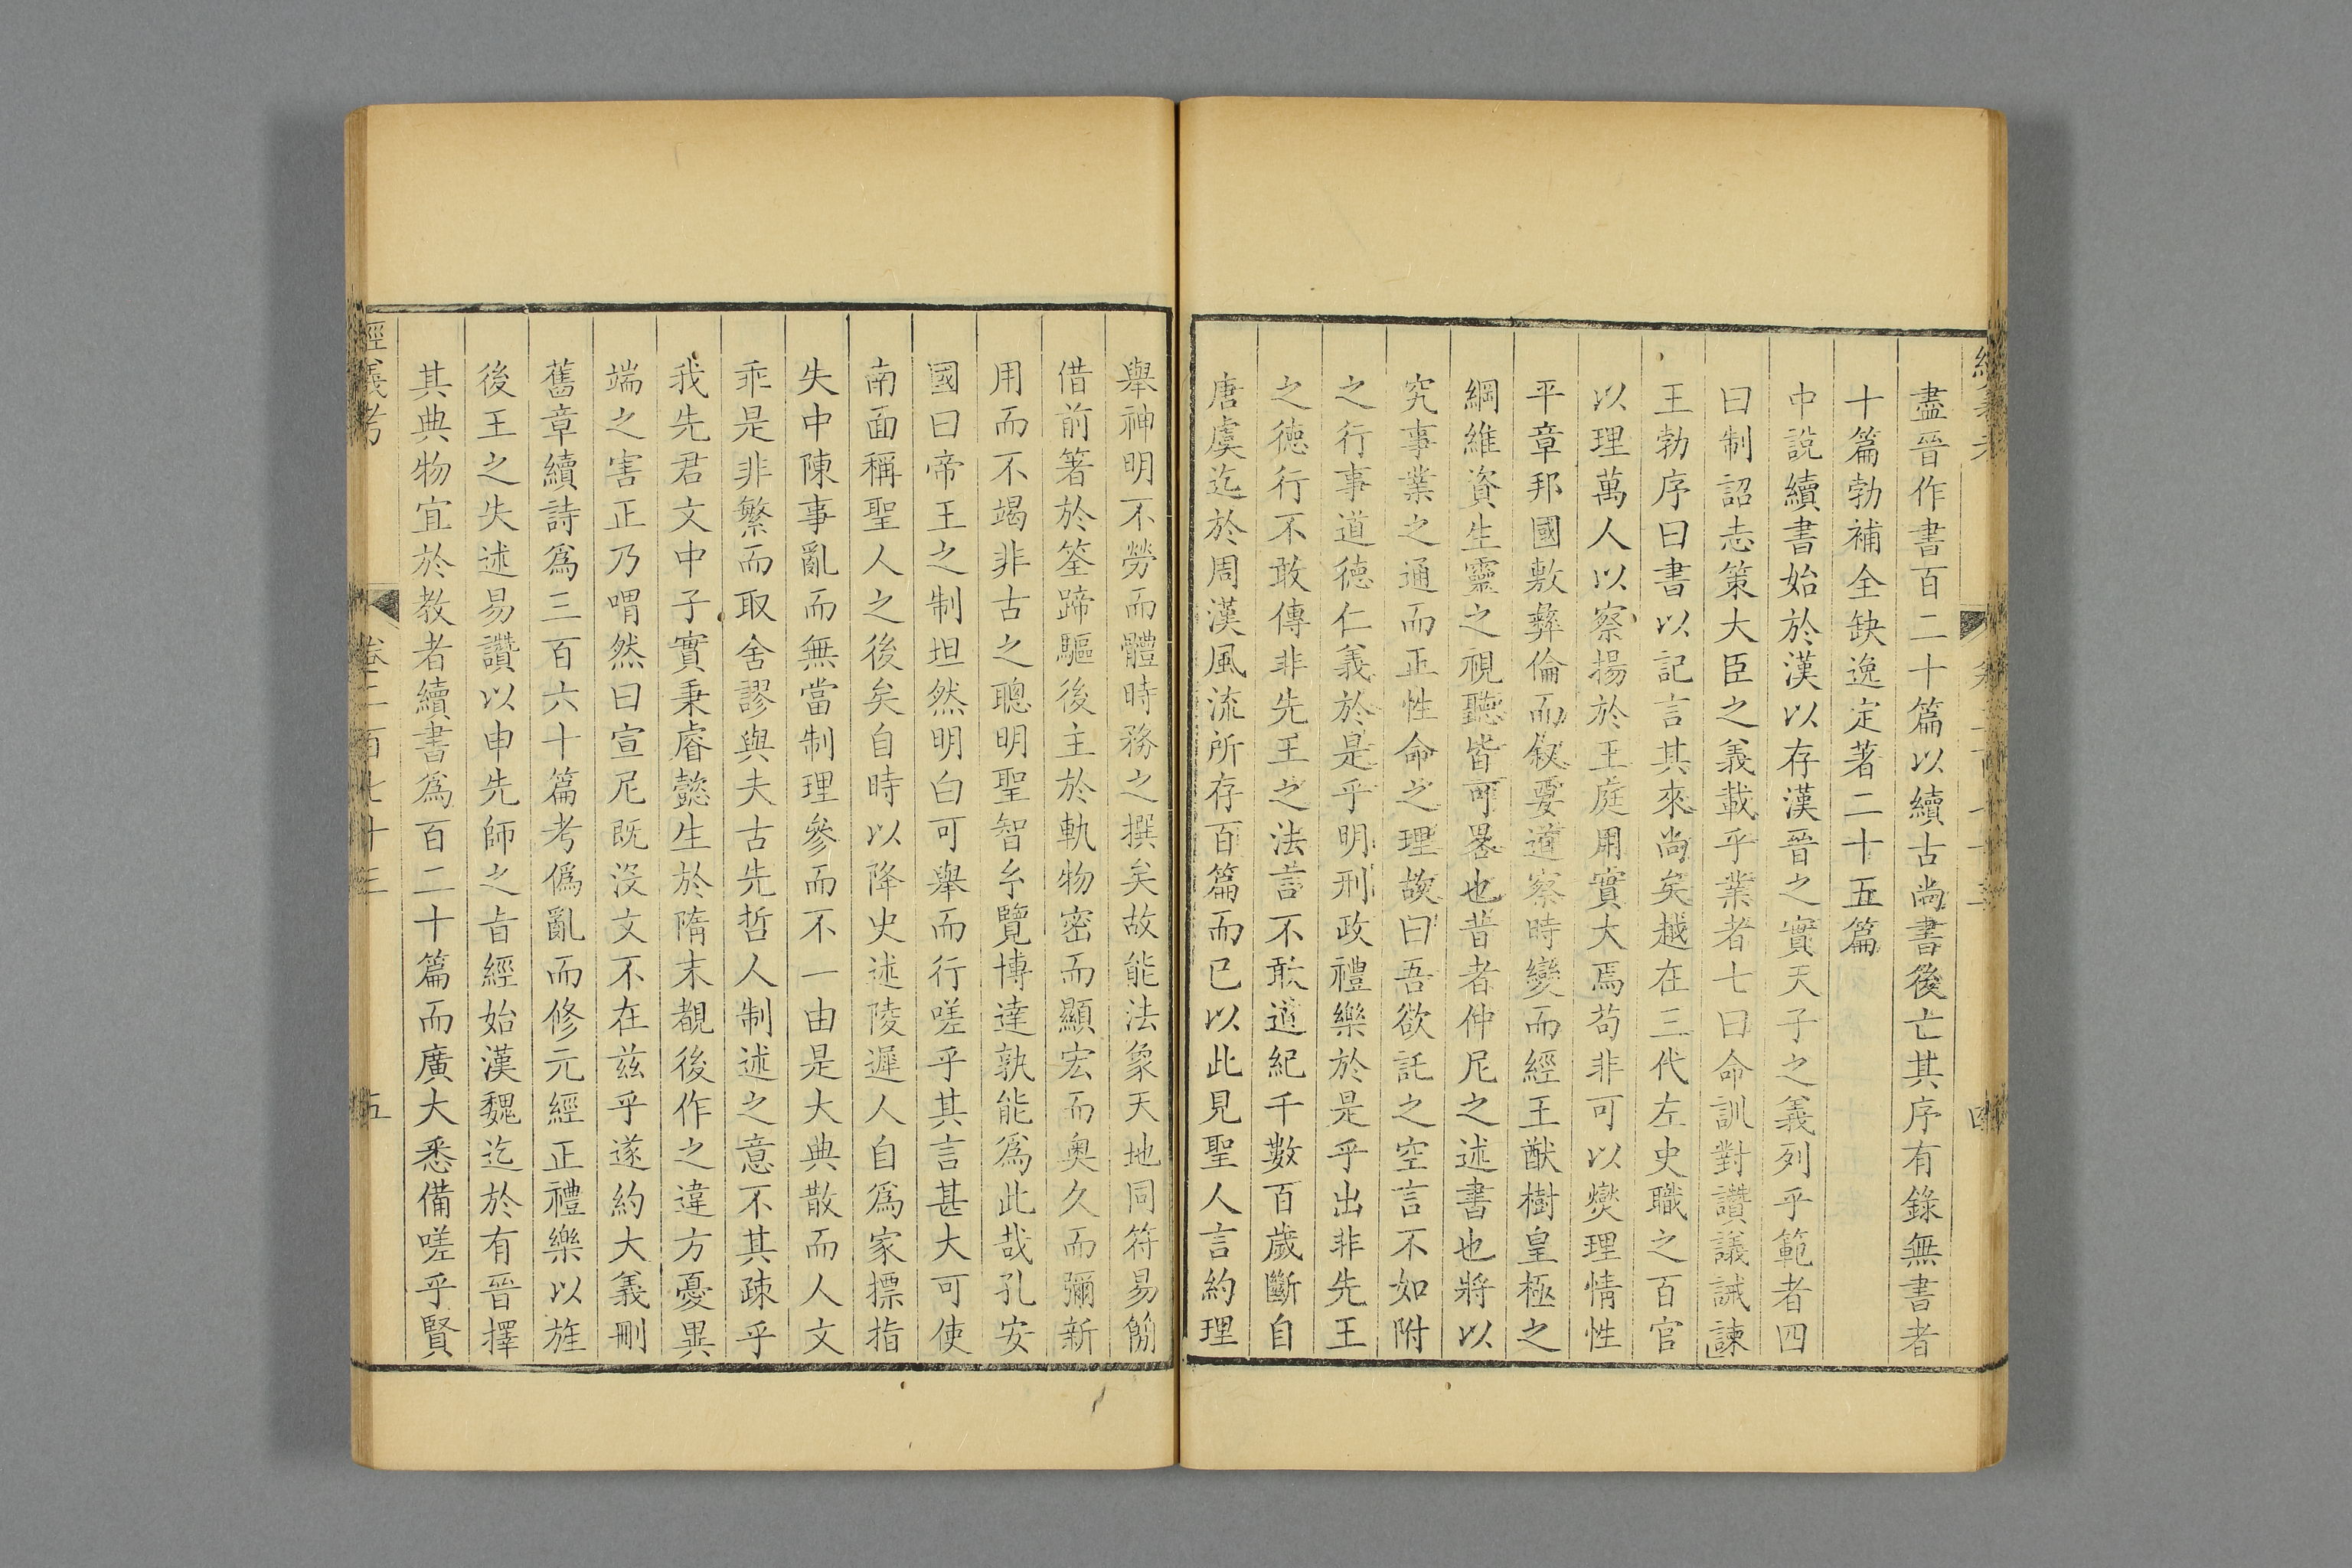 盡晉作書百二十篇以續古尚書後亡其序有錄無書者
十篇勃補全缺逸定著二十五篇
中說續書始於漢以存漢晉之實天子之義列乎範者四
曰制詔志策大臣之義載乎業者七曰命訓對讚議誡諫
王勃序曰書以記言其來尚矣越在三代左史職之百官
以理萬人以察揚於王庭用實大焉苟非可以爕理情性
平章邦國敷彝倫而叙要道察時變而經王猷樹皇極之
綱維資生靈之視聽皆可畧也昔者仲尼之述書也將以
究事業之通而正性命之理故曰吾欲託之空言不如附
之行事道德仁義於是乎明刑政禮樂於是乎出非先王
之德行不敢傳非先王之法言不敢道紀千數百歲斷自
唐虞迄於周漢風流所存百篇而已以此見聖人言約理
舉神明不勞而體時務之撰矣故能法象天地同符易簡
借前箸於筌蹄驅後主於軌物密而顯宏而奧久而彌新
用而不竭非古之聰明聖智糸覽博達孰能爲此哉孔安
國曰帝王之制坦然明白可舉而行嗟乎其言甚大可使
南面稱聖人之後矣自時以降史述陵遲人自爲家摽指
失中陳事亂而無當制理參而不一由是大典散而人文
乖是非繁而取舍謬與夫古先哲人制述之意不其疎乎
我先君文中子實秉睿懿生於隋末覩後作之違方憂異
端之害正乃喟然曰宣尼旣沒文不在兹乎遂約大義刪
舊章續詩爲三百六十篇考僞亂而修元經正禮樂以旌
後王之失述易讚以申先師之旨經始漢魏迄於有晉擇
其典物宜於教者續書爲百二十篇而廣大悉備嗟乎賢
經義考
卷二百七十三
五